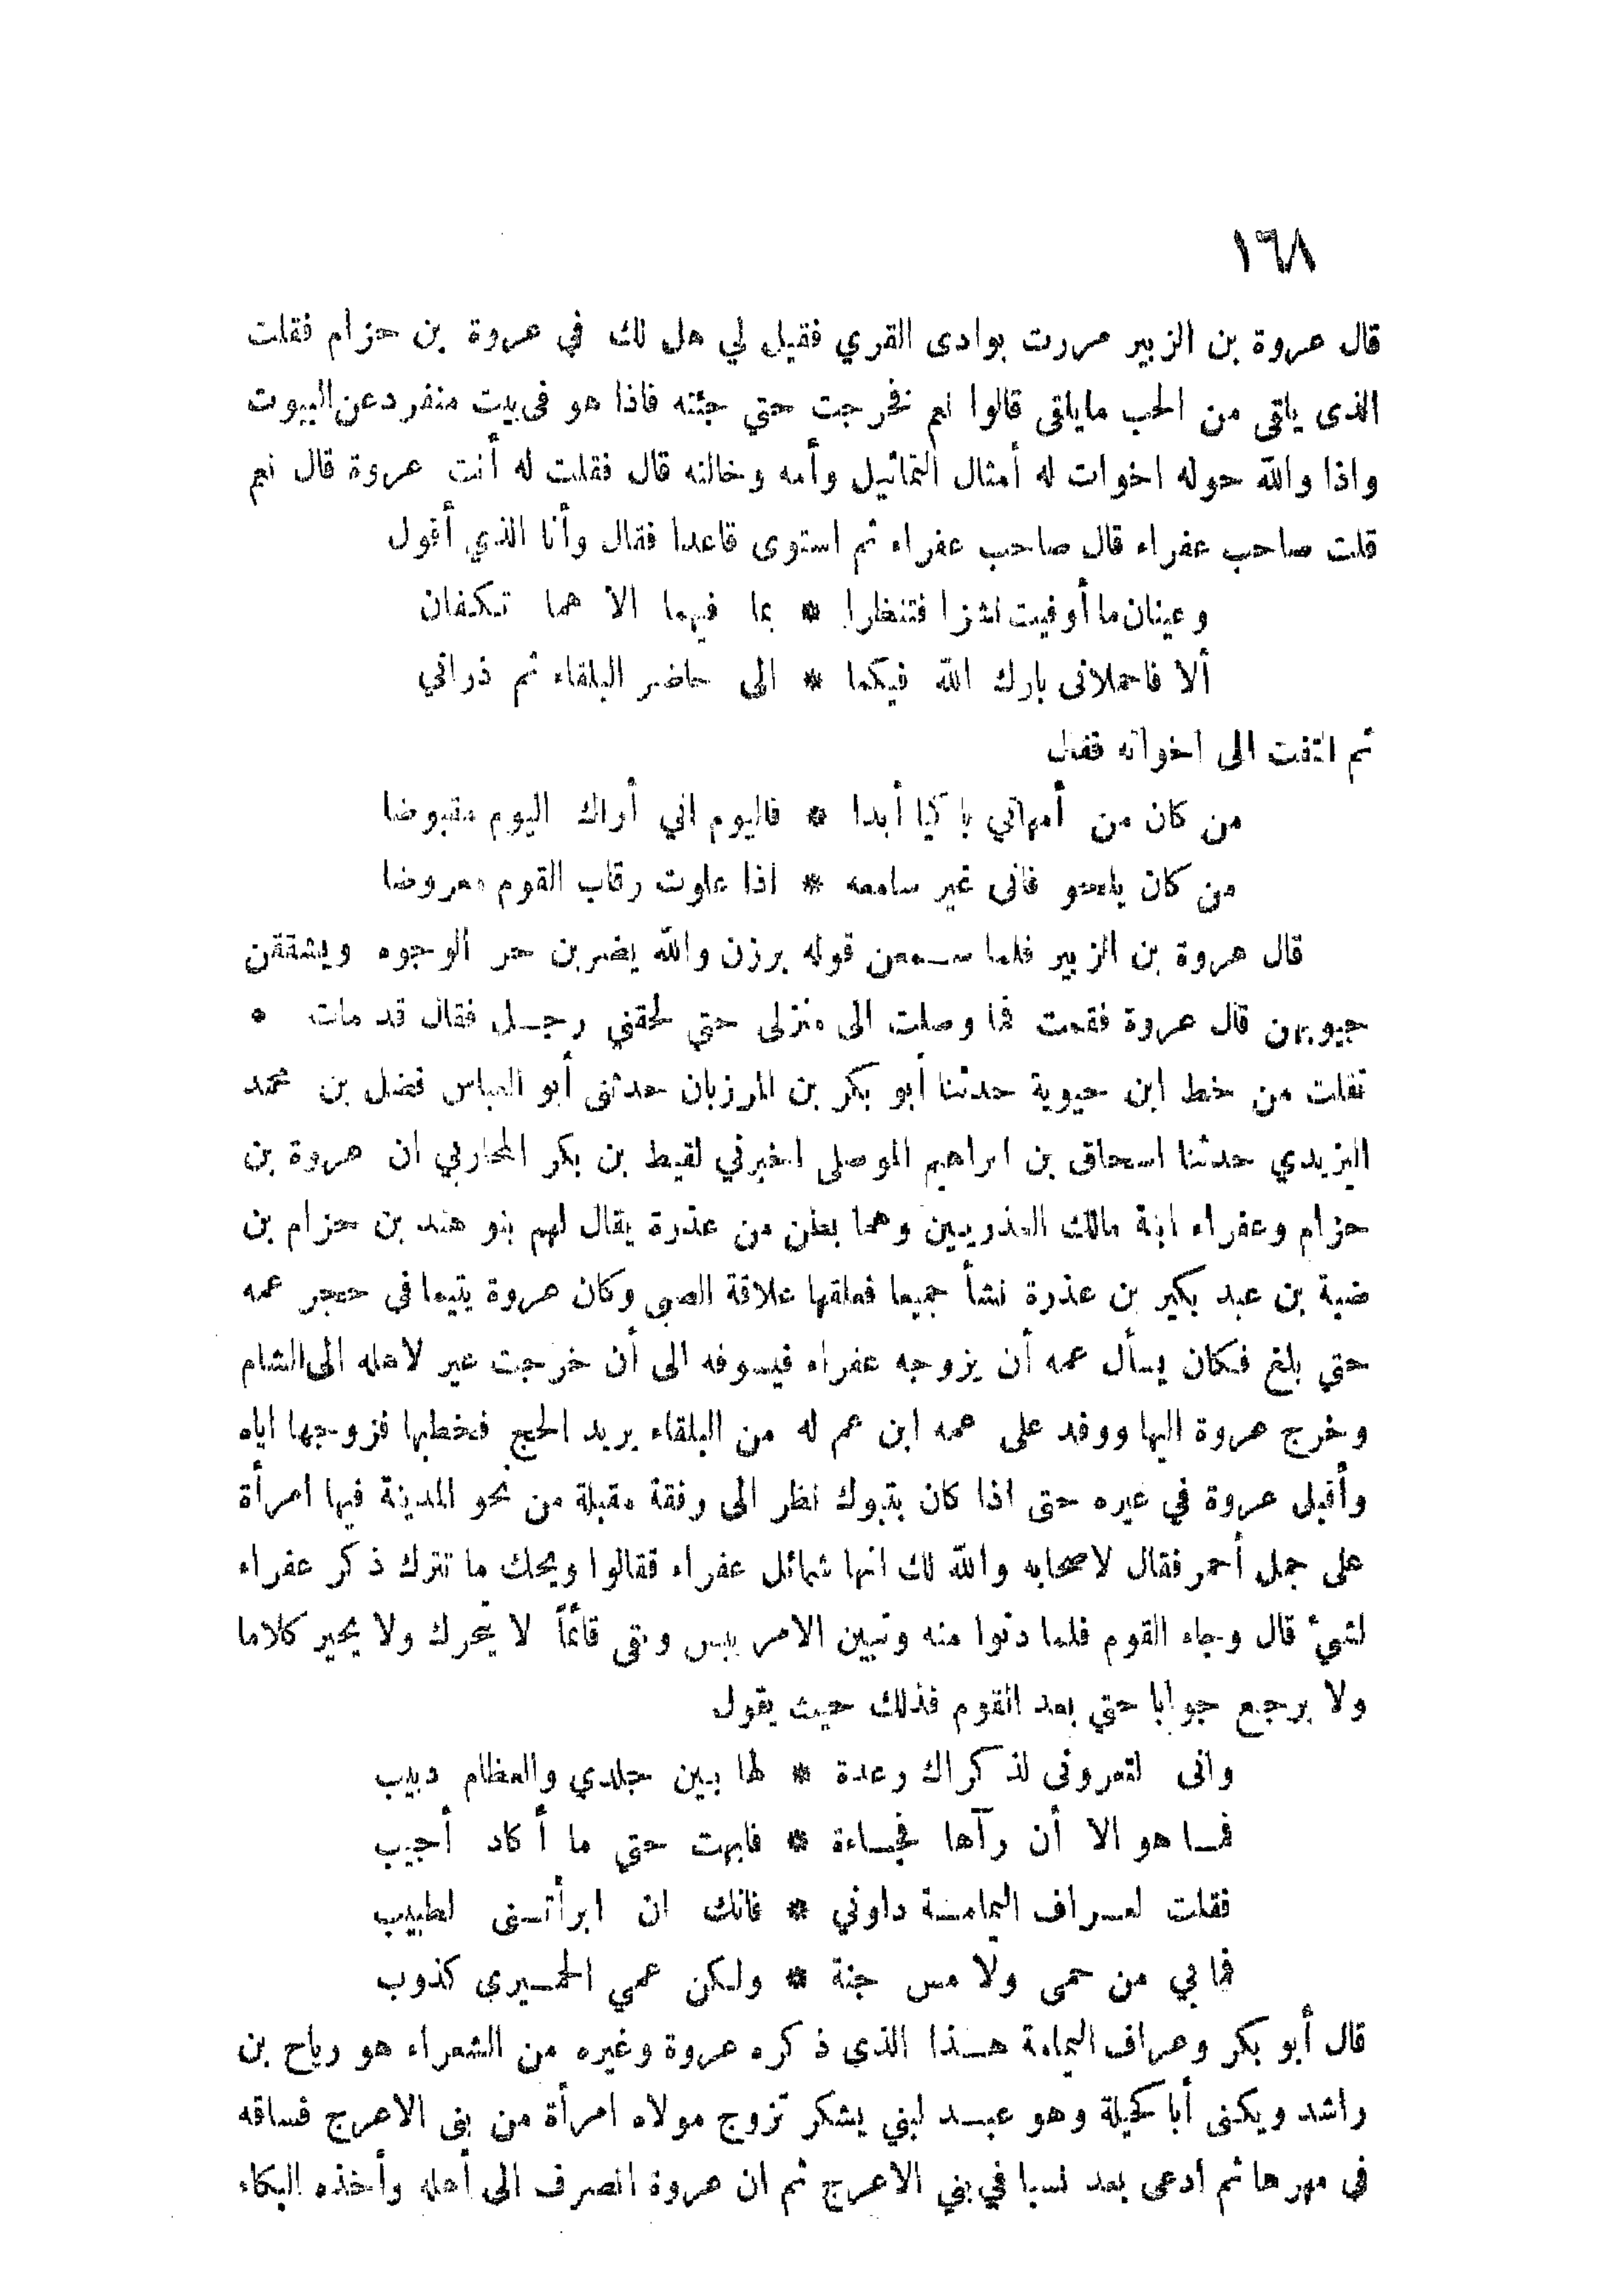 ١٦٨
قال عروة بن الزبير مررت بوادى القري فقيل لي هل لك في عروة بن حزام فقلت
الذى يلقى من الحب مايلقى قالوا نعم فخرجت حتي جئته فاذا هو فى بيت منفرد عن البيوت
واذا والله حوله اخوات له أمثال التماثيل وأمه وخالته قال فقلت له أنت عروة قال نعم
قلت صاحب عفراء قال صاحب عفراء ثم استوى قاعدا فقال وأنا الذي أقول
وعينان ما أوفيت نشزا فتنظرا * بما فيهما الا هما تكفان
ألا فاحملانى بارك الله فيكما * الى حاضر البلقاء ثم ذراني
ثم التفت الى اخواته فقال
من كان من أمهاتي باكيا أبدا * فاليوم اني أراك اليوم مقبوضا
من كان يلحو فانى غير سامعه * اذا علوت رقاب القوم معروضا
قال عروة بن الزبير فلما سمعن قوله برزن والله يضربن حر الوجوه ويشققن
جيوبهن قال عروة فقمت فما وصلت الى منزلى حتي لحقني رجل فقال قد مات *
نقلت من خط ابن حيوية حدثنا أبو بكر بن المرزبان حدثنى أبو العباس فضل بن محمد
اليزيدي حدثنا اسحاق بن ابراهيم الموصلى اخبرني لقيط بن بكر المحاربي ان عروة بن
حزام وعفراء ابنة مالك العذريين وهما بطن من عذرة يقال لهم بنو هند بن حزام بن
ضبة بن عبد بكير بن عذرة نشأ جميعا فعلقها علاقة الصبى وكان عروة يتيما فى حجر عمه
حتي بلغ فكان يسأل عمه أن يزوجه عفراء فيسوفه الى أن خرجت عير لاهله الى الشام
وخرج عروة اليها ووفد على عمه ابن عم له من البلقاء يريد الحج فخطبها فزوجها اياه
وأقبل عروة في عيره حتى اذا كان بتبوك نظر الى رفقة مقبلة من نحو المدينة فيها امرأة
على جمل أحمر فقال لاصحابه والله لك انها شمائل عفراء فقالوا ويحك ما تترك ذكر عفراء
لشئ قال وجاء القوم فلما دنوا منه وتبين الامر يبس وبقى قائماً لا يتحرك ولا يحير كلاما
ولا يرجع جوابا حتي بعد القوم فذلك حيث يقول
وانى لتعرونى لذكراك رعدة * لها بين جلدي والعظام دبيب
فما هو الا أن رآها فجاءة * فابهت حتي ما أكاد أجيب
فقلت لعراف اليمامة داوني * فانك ان ابرأتنى لطبيب
فما بي من حمى ولا مس جنة * ولكن عمي الحميرى كذوب
قال أبو بكر وعراف اليمامة هذا الذى ذكره عروة وغيره من الشعراء هو رياح بن
راشد ويكنى أبا كحيلة وهو عبد لبني يشكر تزوج مولاه امرأة من بنى الاعرج فساقه
فى مهرها ثم ادعى بعد نسبا في بني الاعرج ثم ان عروة انصرف الى أهله وأخذه البكاء